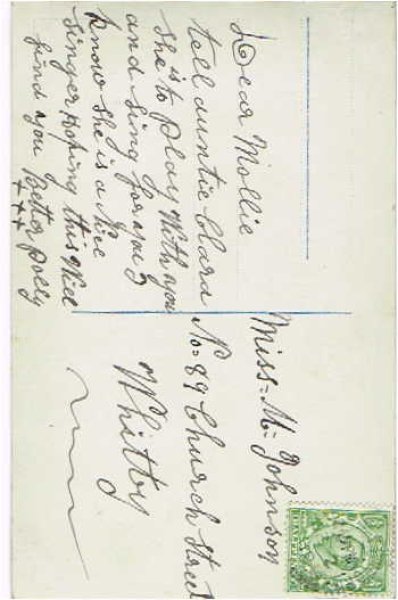 Dear Mollie
tell auntie Clara
she is to play with you
and sing for you I
know she is a Nice
singer hoping this will
find you better Polly
+++
Miss-M-Johnson
No=89 Church Street
Whitby